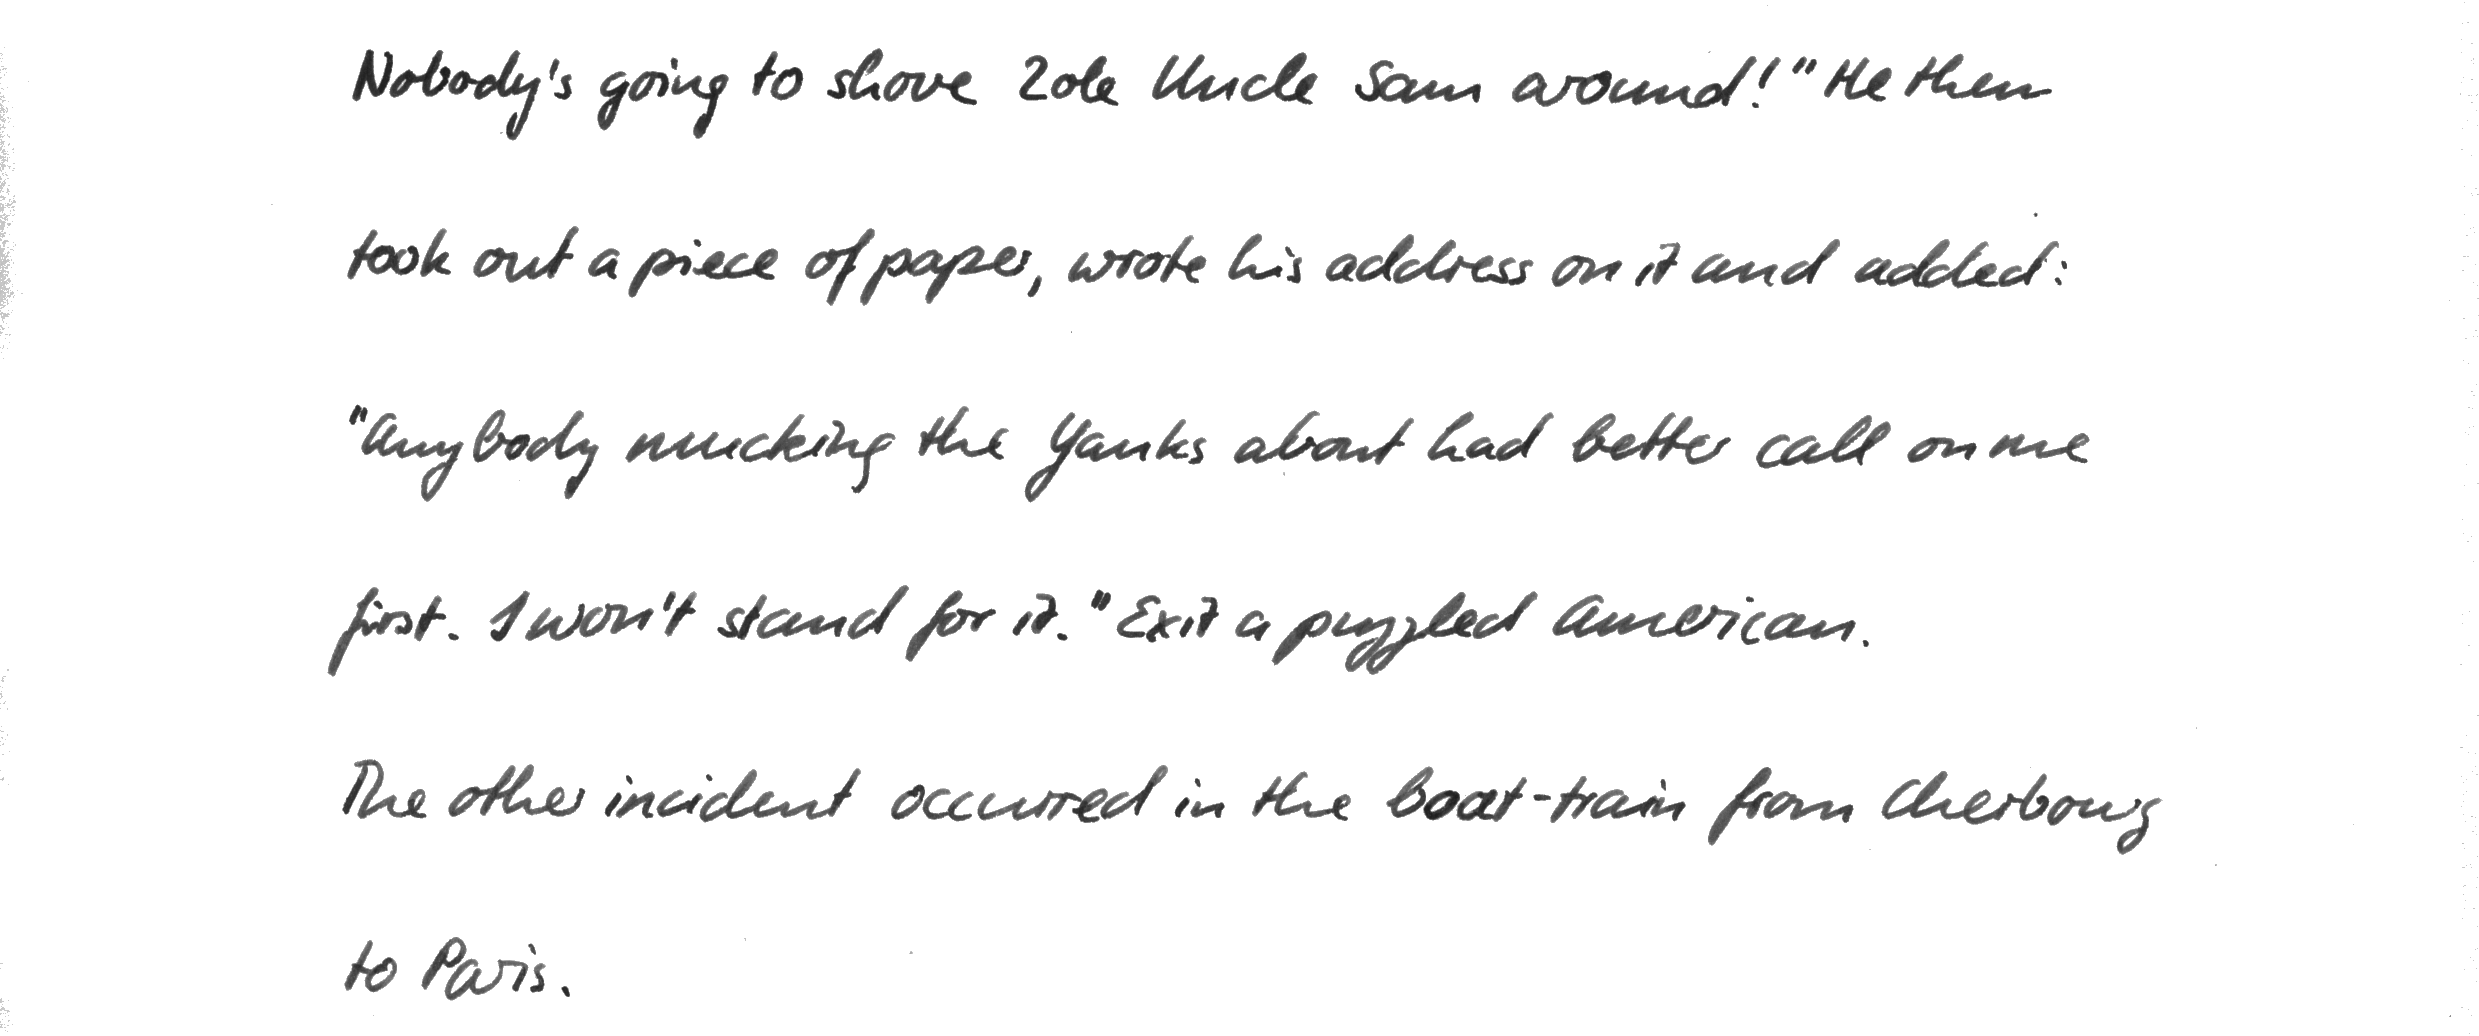 Nobody's going to shove 2ole Uncle Sam around!" He then
took out a piece of paper, wrote his address on it and added:
"Anybody mucking the Yanks about had better call on me
first. I won't stand for it." Exit a puzzled American.
The other incident occurred in the boat-train from Cherbourg
to Paris.